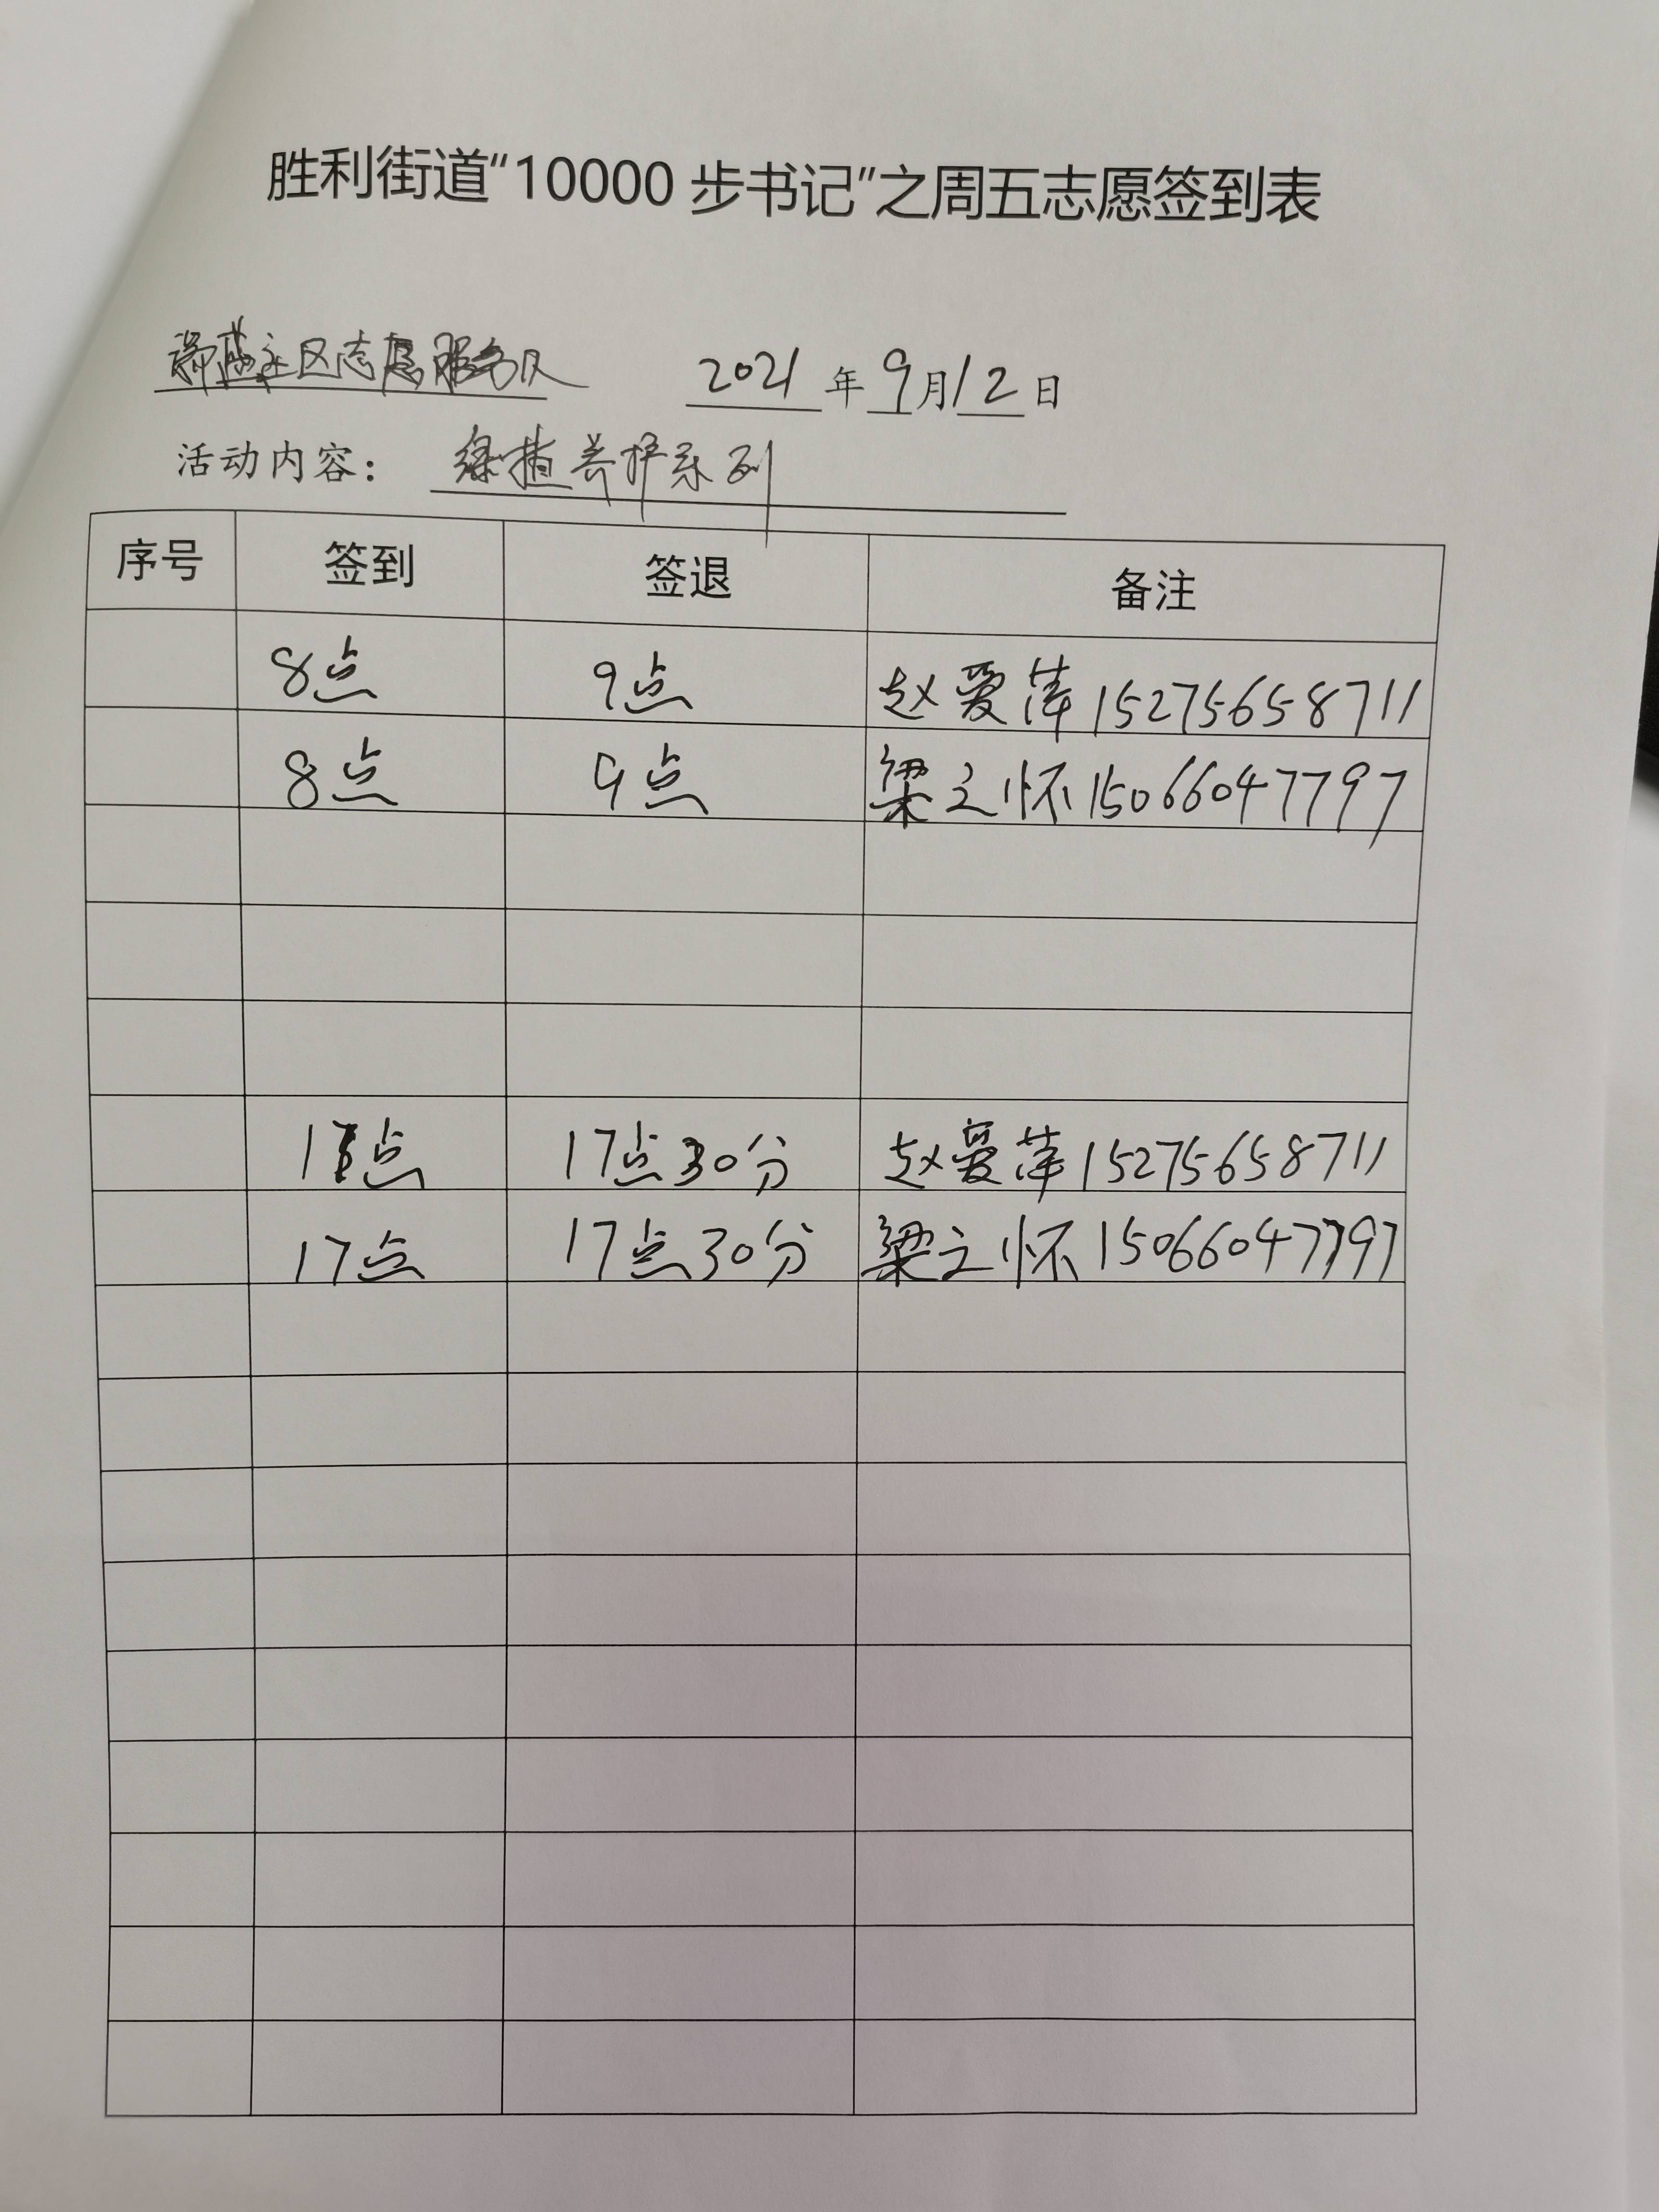 胜利街道“10000 步书记”之周五志愿签到表
社区志愿服务队 2021 年 9 月 12 日
活动内容: 绿植养护系列
序号 签到 签退 备注
8点 9点 赵爱萍 15275658711
8点 9点 梁之怀 15066047797
17点 17点30分 赵爱萍 15275658711
17点 17点30分 梁之怀 15066047797